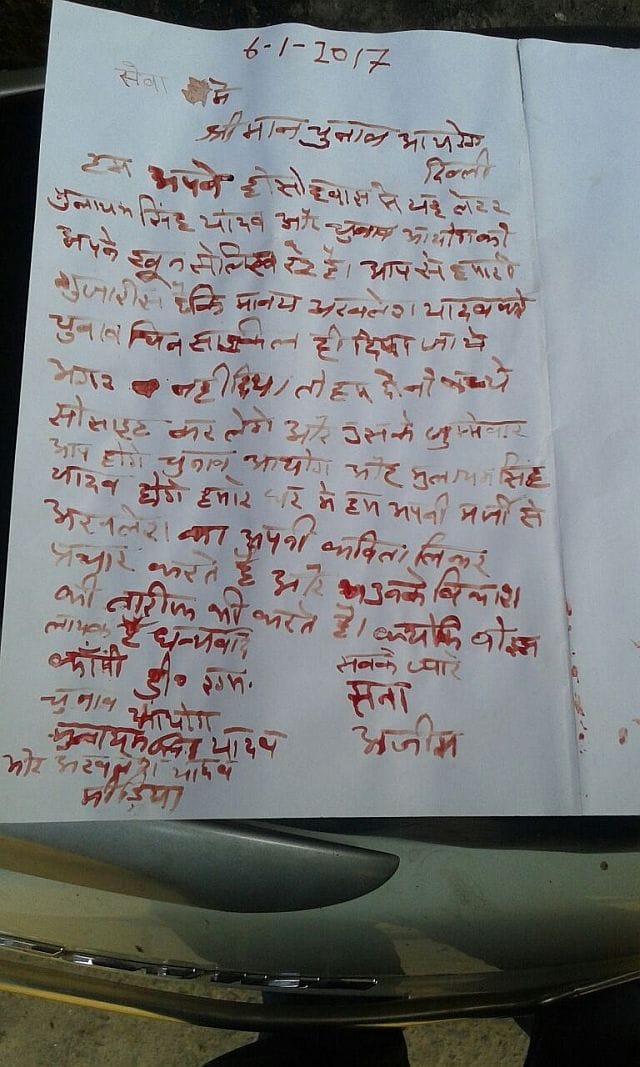 6-1-2017
सेवा में
श्री मान चुनाव आयोग
दिल्ली
हम अपने होसो हवास से यह लेटर
मुलायम सिंह यादव और चुनाव आयोग को
अपने खून से लिख रहे है। आप से हमारी
गुजारीस है कि मानय अखलेश यादव को
चुनाव चिन साइकिल ही दिया जाये
अगर नही दिया तो हम दोनो बच्चे
सोसाइट कर लेगे और उसके जुम्मेवार
आप होगे चुनाव आयोग और मुलायम सिंह
यादव होगे हमारे घर मे हम अपनी मर्जी से
अखलेश का अपनी कविता लिकर
प्रचार करते है और उनके विकाश
की तारीफ भी करते है। क्योकि वो इस
लायक है धन्यवाद
सबके प्यारे
कॉपी डी॰ एम.
सना
चुनाव आयोग
मुलायम सिंह यादव
अजीम
और अखलेश यादव
मीडिया